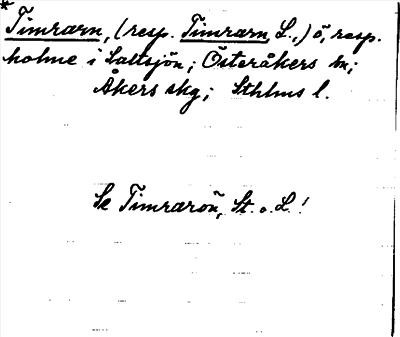 *
Timrarn, (resp. Timrarn, L.,) ö, resp.
holme i Saltsjön; Österåkers sn;
Åkers skg; Sthlms l.
Se Timrarön, St. o. L.!